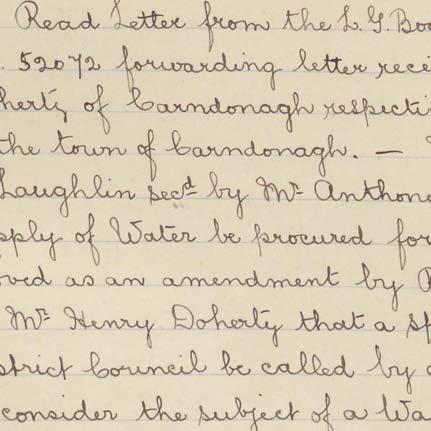 Read Letter from the L. G. Boa
. 52072 forwarding letter recei
herty of Carndonagh respecti
the town of Carndonagh. —
Laughlin secd by Mr Anthon
pply of Water be procured for
oved as an amendment by
Mr Henry Doherty that a sp
strict Council be called by
consider the subject of a Wa